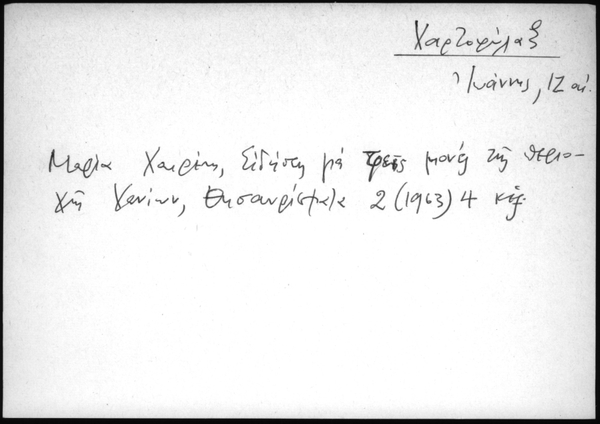 Χαρτοφύλαξ
Ἰωάννης, 17 αἰ.
Μαρία Χαιρέτη, Εἰδήσεις γιά τρεῖς μονές τῆς περιο-
χῆς Χανίων, Θησαυρίσματα 2 (1963) 4 κἑξ.